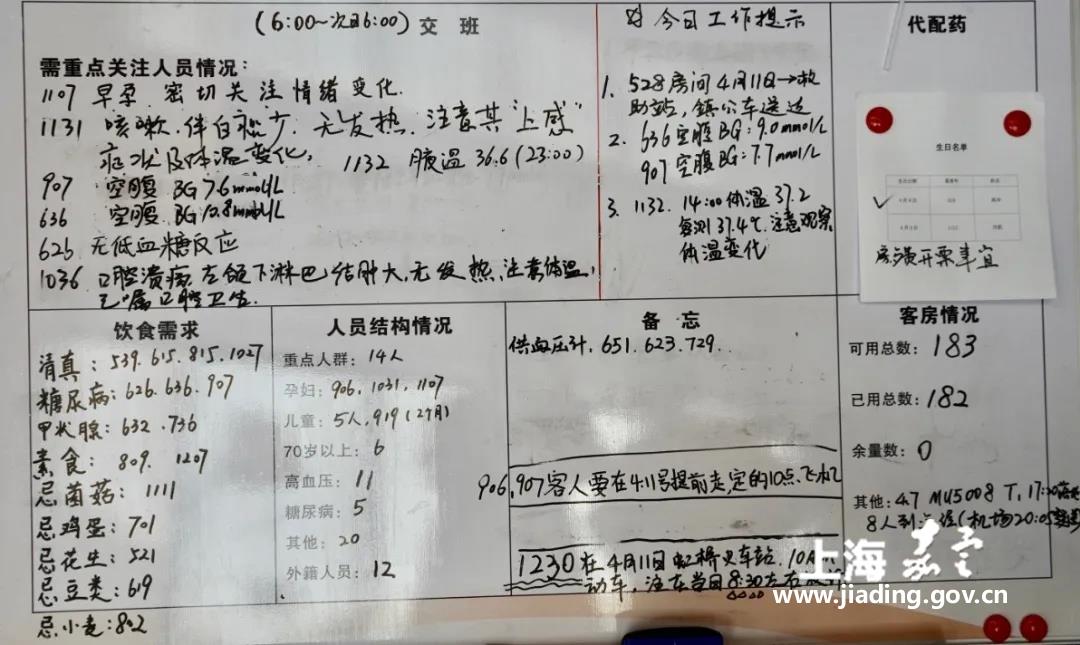 (6:00~次日6:00) 交 班
需重点关注人员情况：
1107 早孕. 密切关注情绪变化.
1131 咳嗽.伴白痰少. 无发热. 注意其"上感"
症状及体温变化, 1132 腋温 36.6 (23:00)
907 空腹 BG 7.6mmol/L
636 空腹 BG 10.8mmol/L
626 无低血糖反应
1036 口腔溃疡, 左颌下淋巴结肿大,无发热,注意体温,
已嘱口腔卫生.
今日工作提示
1. 528房间4月11日→救
助站，镇公车送达
2. 636空腹BG:9.0mmol/L
907空腹BG:7.7mmol/L
3. 1132. 14:00体温37.2
复测37.4℃.注意观察
体温变化
代配药
生日名单
房费开票事宜
饮食需求
清真：539.615.815.1027
糖尿病：626.636.907
甲状腺：632.736
素食：809. 1207
忌菌菇：1111
忌鸡蛋：701
忌花生：521
忌豆类：619
忌小麦:802
人员结构情况
重点人群：14人
孕妇：906,1031,1107
儿童：5人,919(2个月)
70岁以上：6
高血压：11
糖尿病：5
其他：20
外籍人员：12
备 忘
供血压计. 651.623.729..
906,907客人要在4.11号提前走,定的10点飞机
1230在4月11日虹桥火车站 10点
动车，注在当日8:30左右
客房情况
可用总数：183
已用总数：182
余量数：0
其他：4.7 MU5008 T, 17:20
8人到(机场20:05
上海嘉定
www.jiading.gov.cn